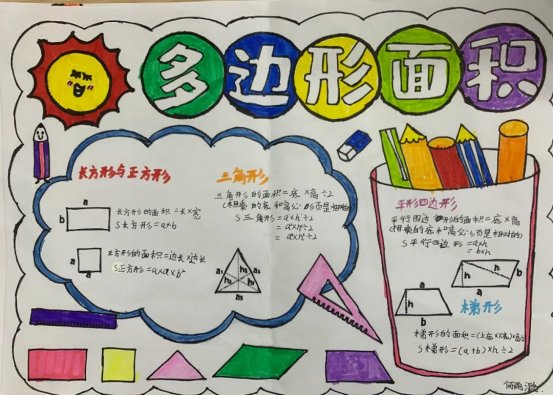 多边形面积
长方形与正方形
a
b
长方形的面积=长×宽
S长方形=a×b
a
a
正方形的面积=边长×边长
S正方形=a×a
三角形
三角形的面积=底×高÷2
(相乘的底和高必须是相对的)
S三角形=a×h÷2
=a×h÷2
=a×h÷2
a₁
h₁
h₂
h₃
a₂
a₃
平行四边形
平行四边形的面积=底×高
(相乘的底和高必须是相对的)
S平行四边形=a×h
=b×h
a
h
b
a
h
b
梯形
梯形的面积=(上底+下底)×高÷2
S梯形=(a+b)×h÷2